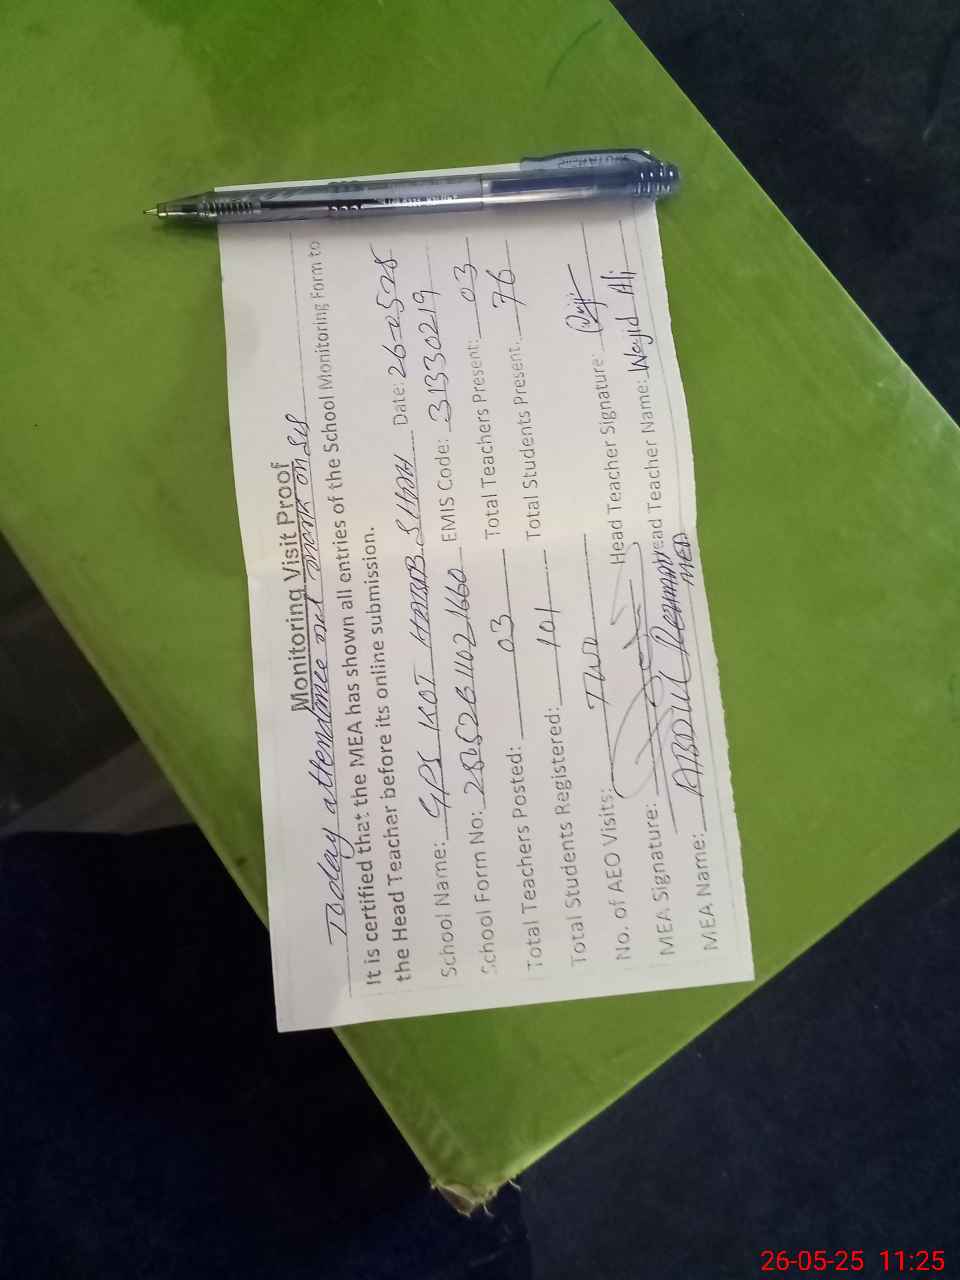 Monitoring Visit Proof
Today attendance not mark on SIS
It is certified that the MEA has shown all entries of the School Monitoring Form to
the Head Teacher before its online submission.
School Name: GPS KOT HABIB SHAH Date: 26-05-25
School Form No: EMIS Code: 31330219
Total Teachers Posted: 03 Total Teachers Present: 03
Total Students Registered: 101 Total Students Present: 76
No. of AEO Visits: TWO
MEA Signature: Head Teacher Signature:
MEA Name: ABDUL REHMAN Head Teacher Name: Wajid Ali
MEA
26-05-25 11:25